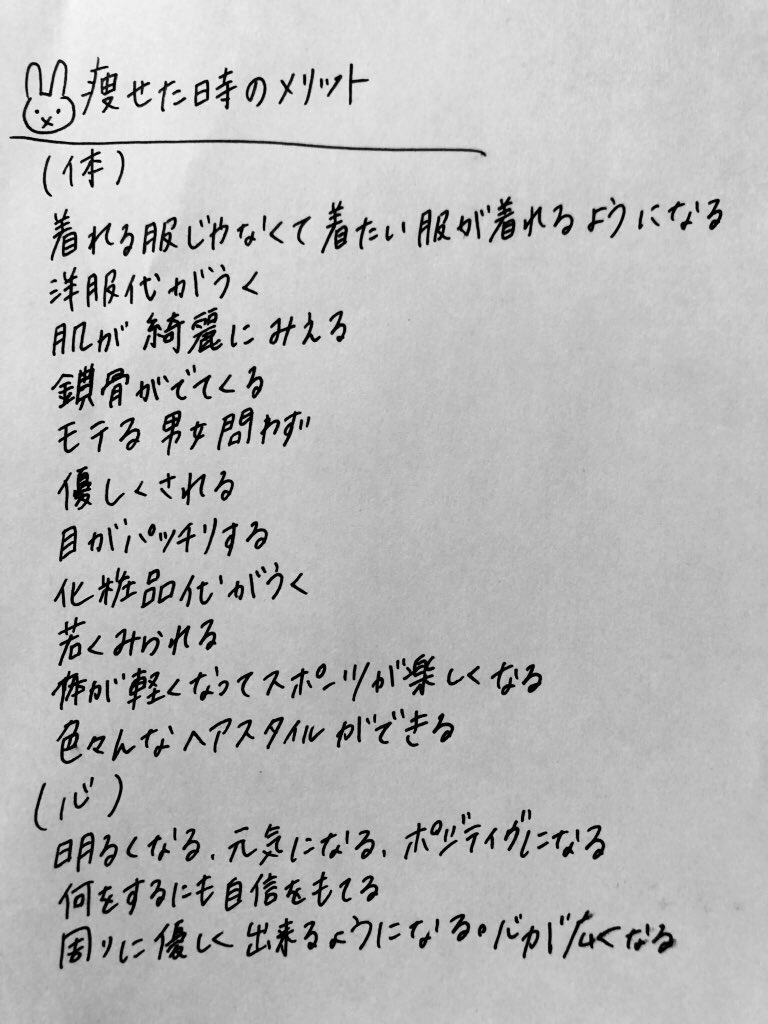 痩せた時のメリット
(体)
着れる服じゃなくて着たい服が着れるようになる
洋服代がうく
肌が綺麗にみえる
鎖骨がでてくる
モテる 男女問わず
優しくされる
目がパッチリする
化粧品代がうく
若くみられる
体が軽くなってスポーツが楽しくなる
色々んなヘアスタイルができる
(心)
明るくなる、元気になる、ポジティヴになる
何をするにも自信をもてる
周りに優しく出来るようになる。心が広くなる